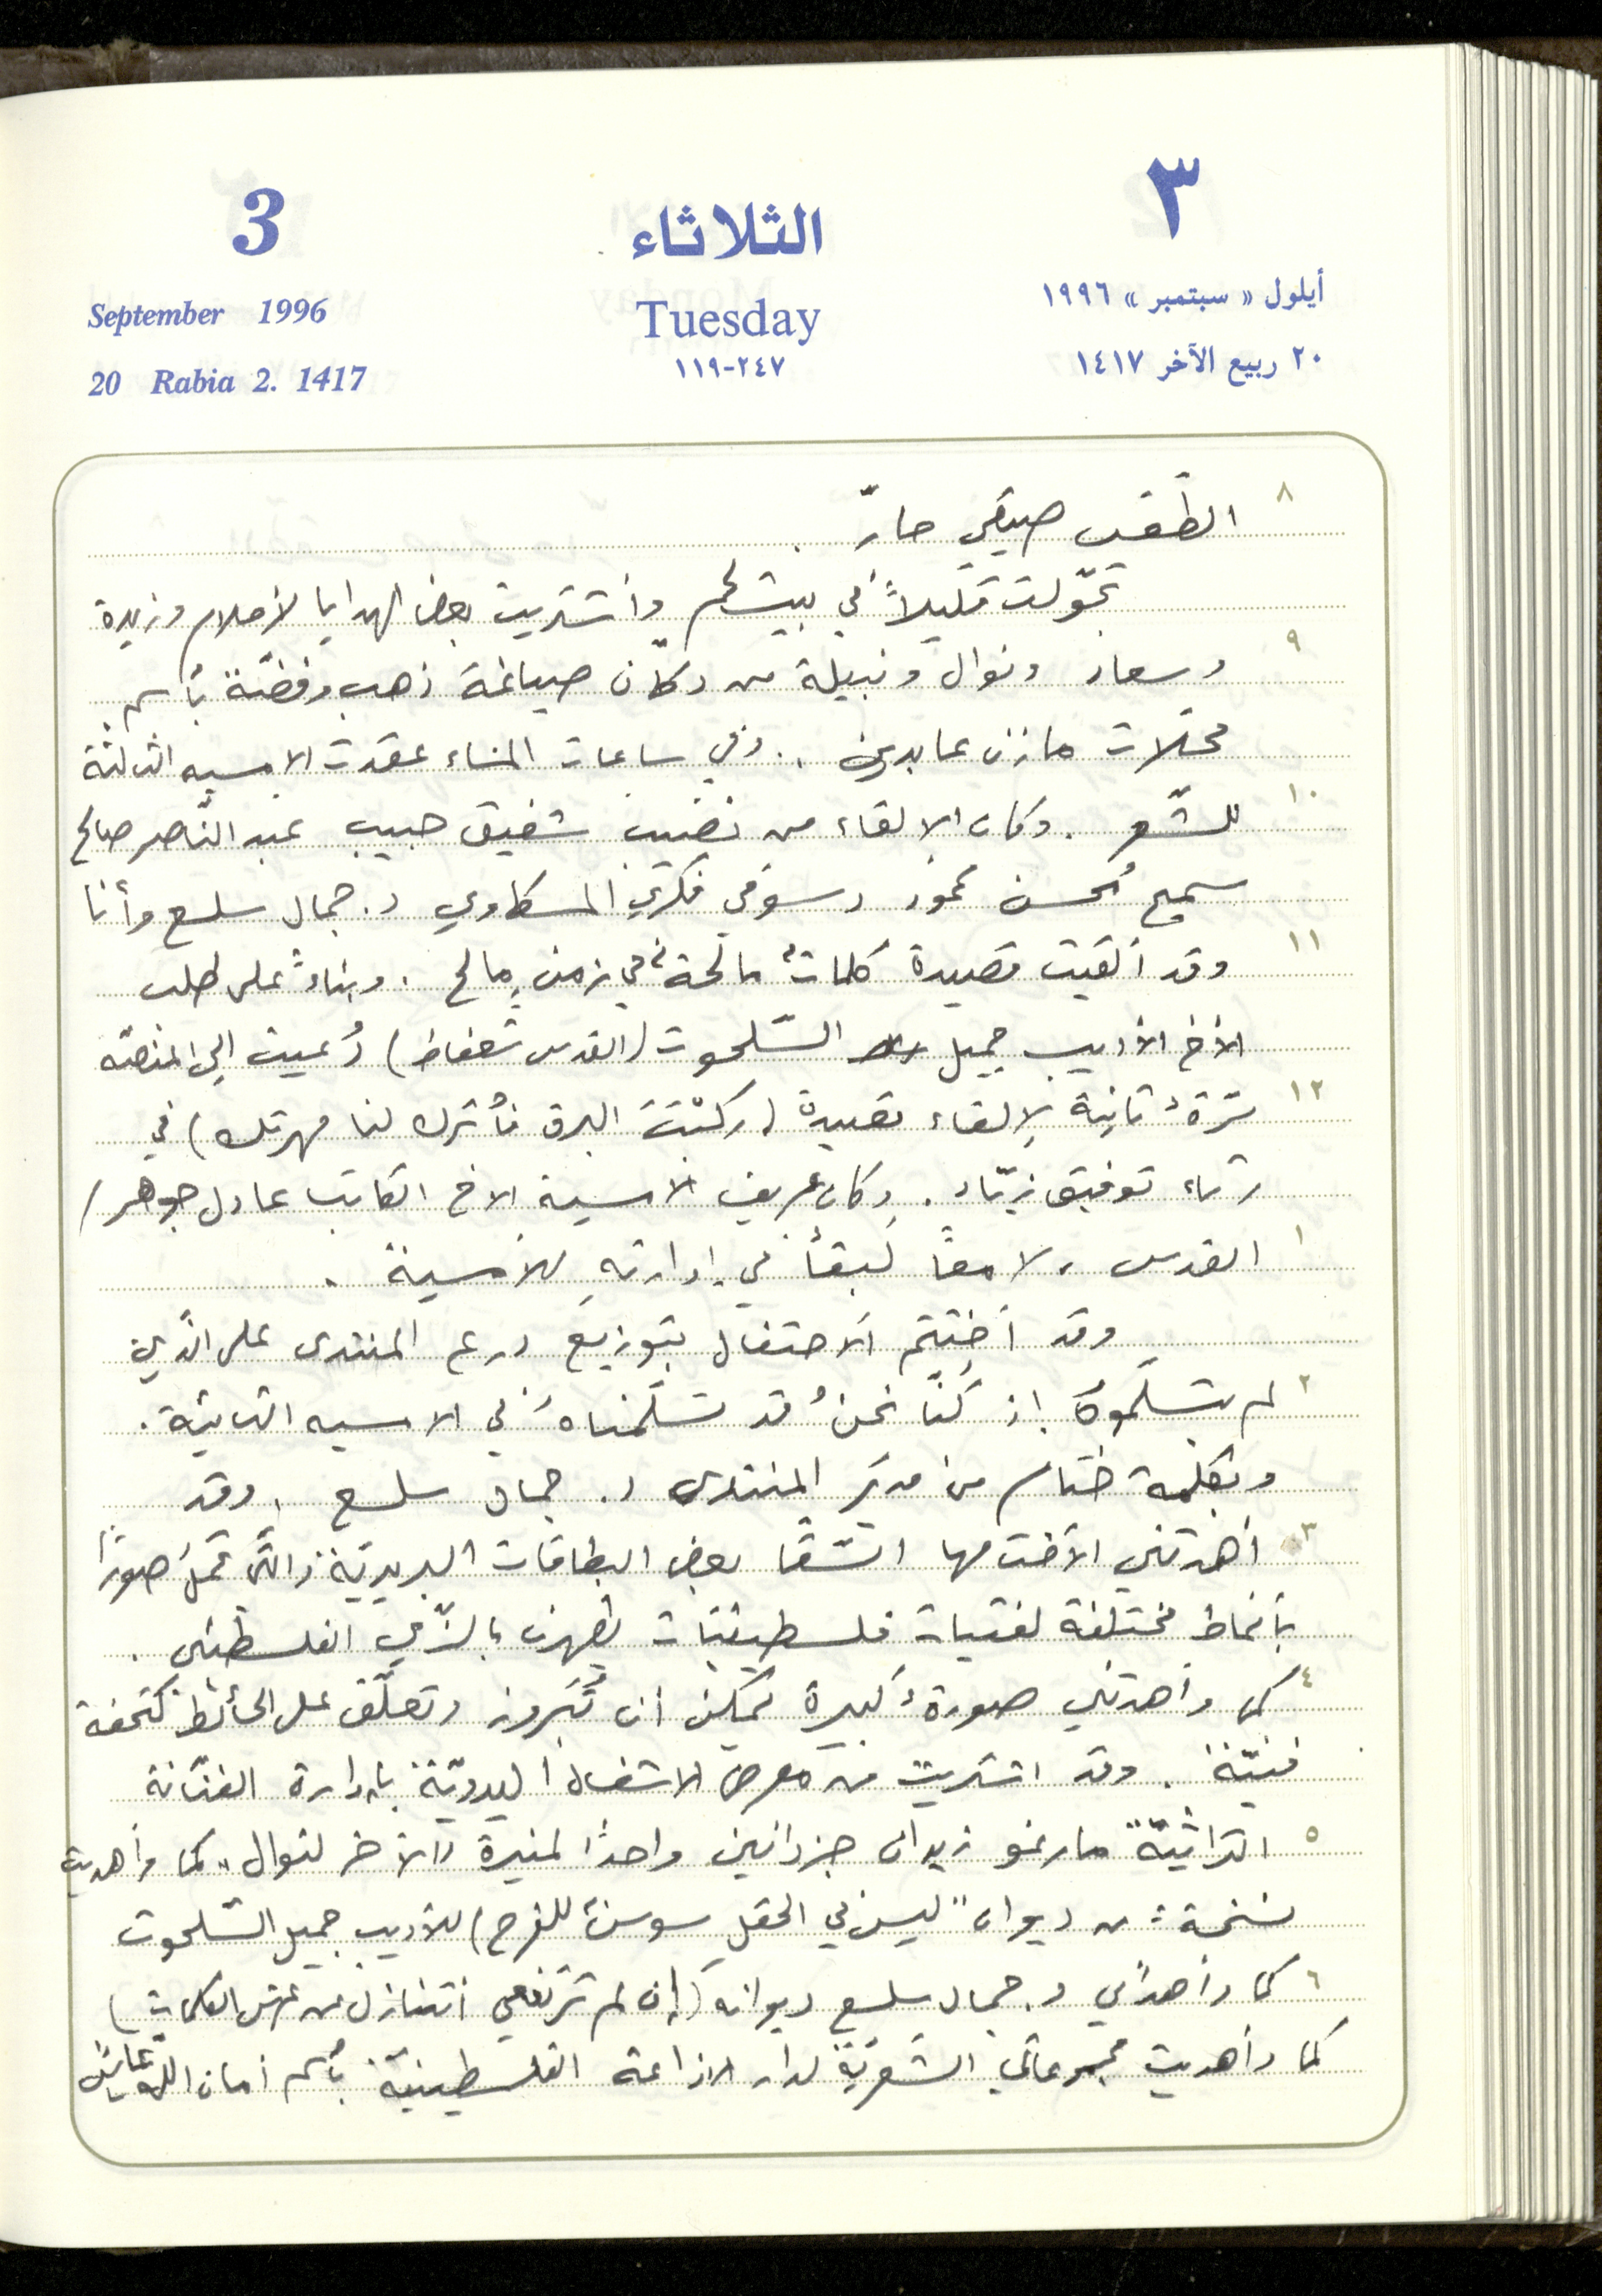 3
الثلاثاء
٣
September 1996
Tuesday
أيلول « سبتمبر » ١٩٩٦
20 Rabia 2. 1417
٢٤٧-١١٩
٢٠ ربيع الآخر ١٤١٧
٨ الطقس صيفي حارّ .
تجوّلت قليلاً في بيت لحم واشتريت بعض الهدايا لأحلام وزبيدة
٩ وسعاد ونوال ونبيلة من دكّان صياغة ذهب وفضّة بأسم
محلات مازن عابدين .. وفي ساعات المساء عقدت الامسيه الثالثة
١٠ للشّعر . وكان الإلقاء من نصيب شفيق حبيب عبد النّاصر صالح
سميح مُحسن محمود دسوقي فكري المسكاوي د. جمال سلسع وأنا
١١ وقد ألقيت قصيدة كلماتٌ مالحةٌ في زمنٍ مالح . وبناءً على طلب
الأخ الأديب جميل السّلحوت (القدس شعفاط) دُعيت إلى المنصّه
١٢ مرّةً ثانِية لإلقاء قصيدة (ركبْتَ البرق فأترك لنا مهرتك) في
رثاء توفيق زيّاد . وكان عريف الأمسية الاخ الكاتب عادل جوهر /
١ القدس ، لامعًا لبقًا في إدارتهِ للأمسية .
وقد اختتم الاحتفال بتوزيع درع المنتدى على الذين
٢ لم يتسلّموهُ إذ كنّا نحنُ قد تسلّمناهُ في الامسيه الثانية .
وبكلمة ختام من مدير المنتدى د. جمال سلسع ، وقد
٣ أهدتني الأخت مها السّقا بعض البطاقات البريديّة والتي تحمل صورًا
بأنماط مختلفة لفتيات فلسطينيّات يظهرن بالزّي الفلسطيني .
٤ كما وأهدتني صورةً كبيرة يُمكن ان تُبَروز وتعلّق على الحائط كتحفة
فنيّة . وقد اشتريت من معرض الاشغال اليدويّة بإدارة الفنّانة
٥ التراثيّة مارغو زيدان جزدانين واحدًا لمنيرة والآخر لنوال ، كما وأهديت
نسخة من ديوان "ليس في الحقل سوسنٌ للفرح) للأديب جميل السّلحوت
٦ كما وأهداني د. جمال سلسع ديوانه (إن لم ترتفعي أتنازل عن عرش الكلمات)
كما وأهديت مجموعاتي الشعريّة لدار الاذاعة الفلسطينيّة بأسم أمان الله عايش